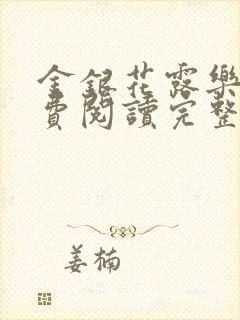 金銀花露樂
費閱讀完整
姜楠